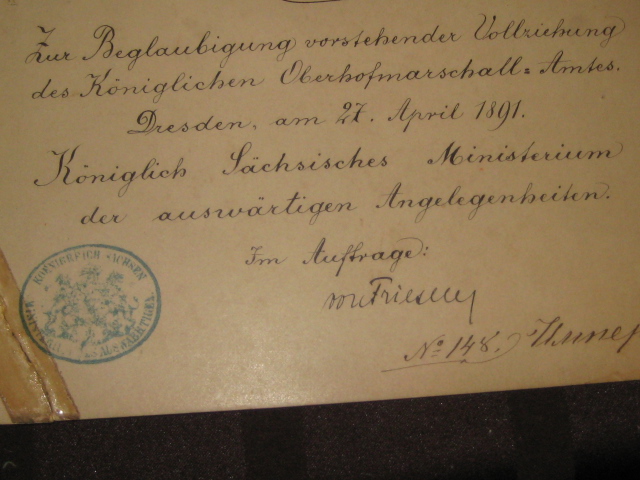 Zur Beglaubigung vorstehender Vollziehung
des Königlichen Oberhofmarschall=Amtes.
Dresden, am 27. April 1891.
Königlich Sächsisches Ministerium
der auswärtigen Angelegenheiten.
Im Auftrage:
von Friesen
KOENIGREICH SACHSEN
No 148.